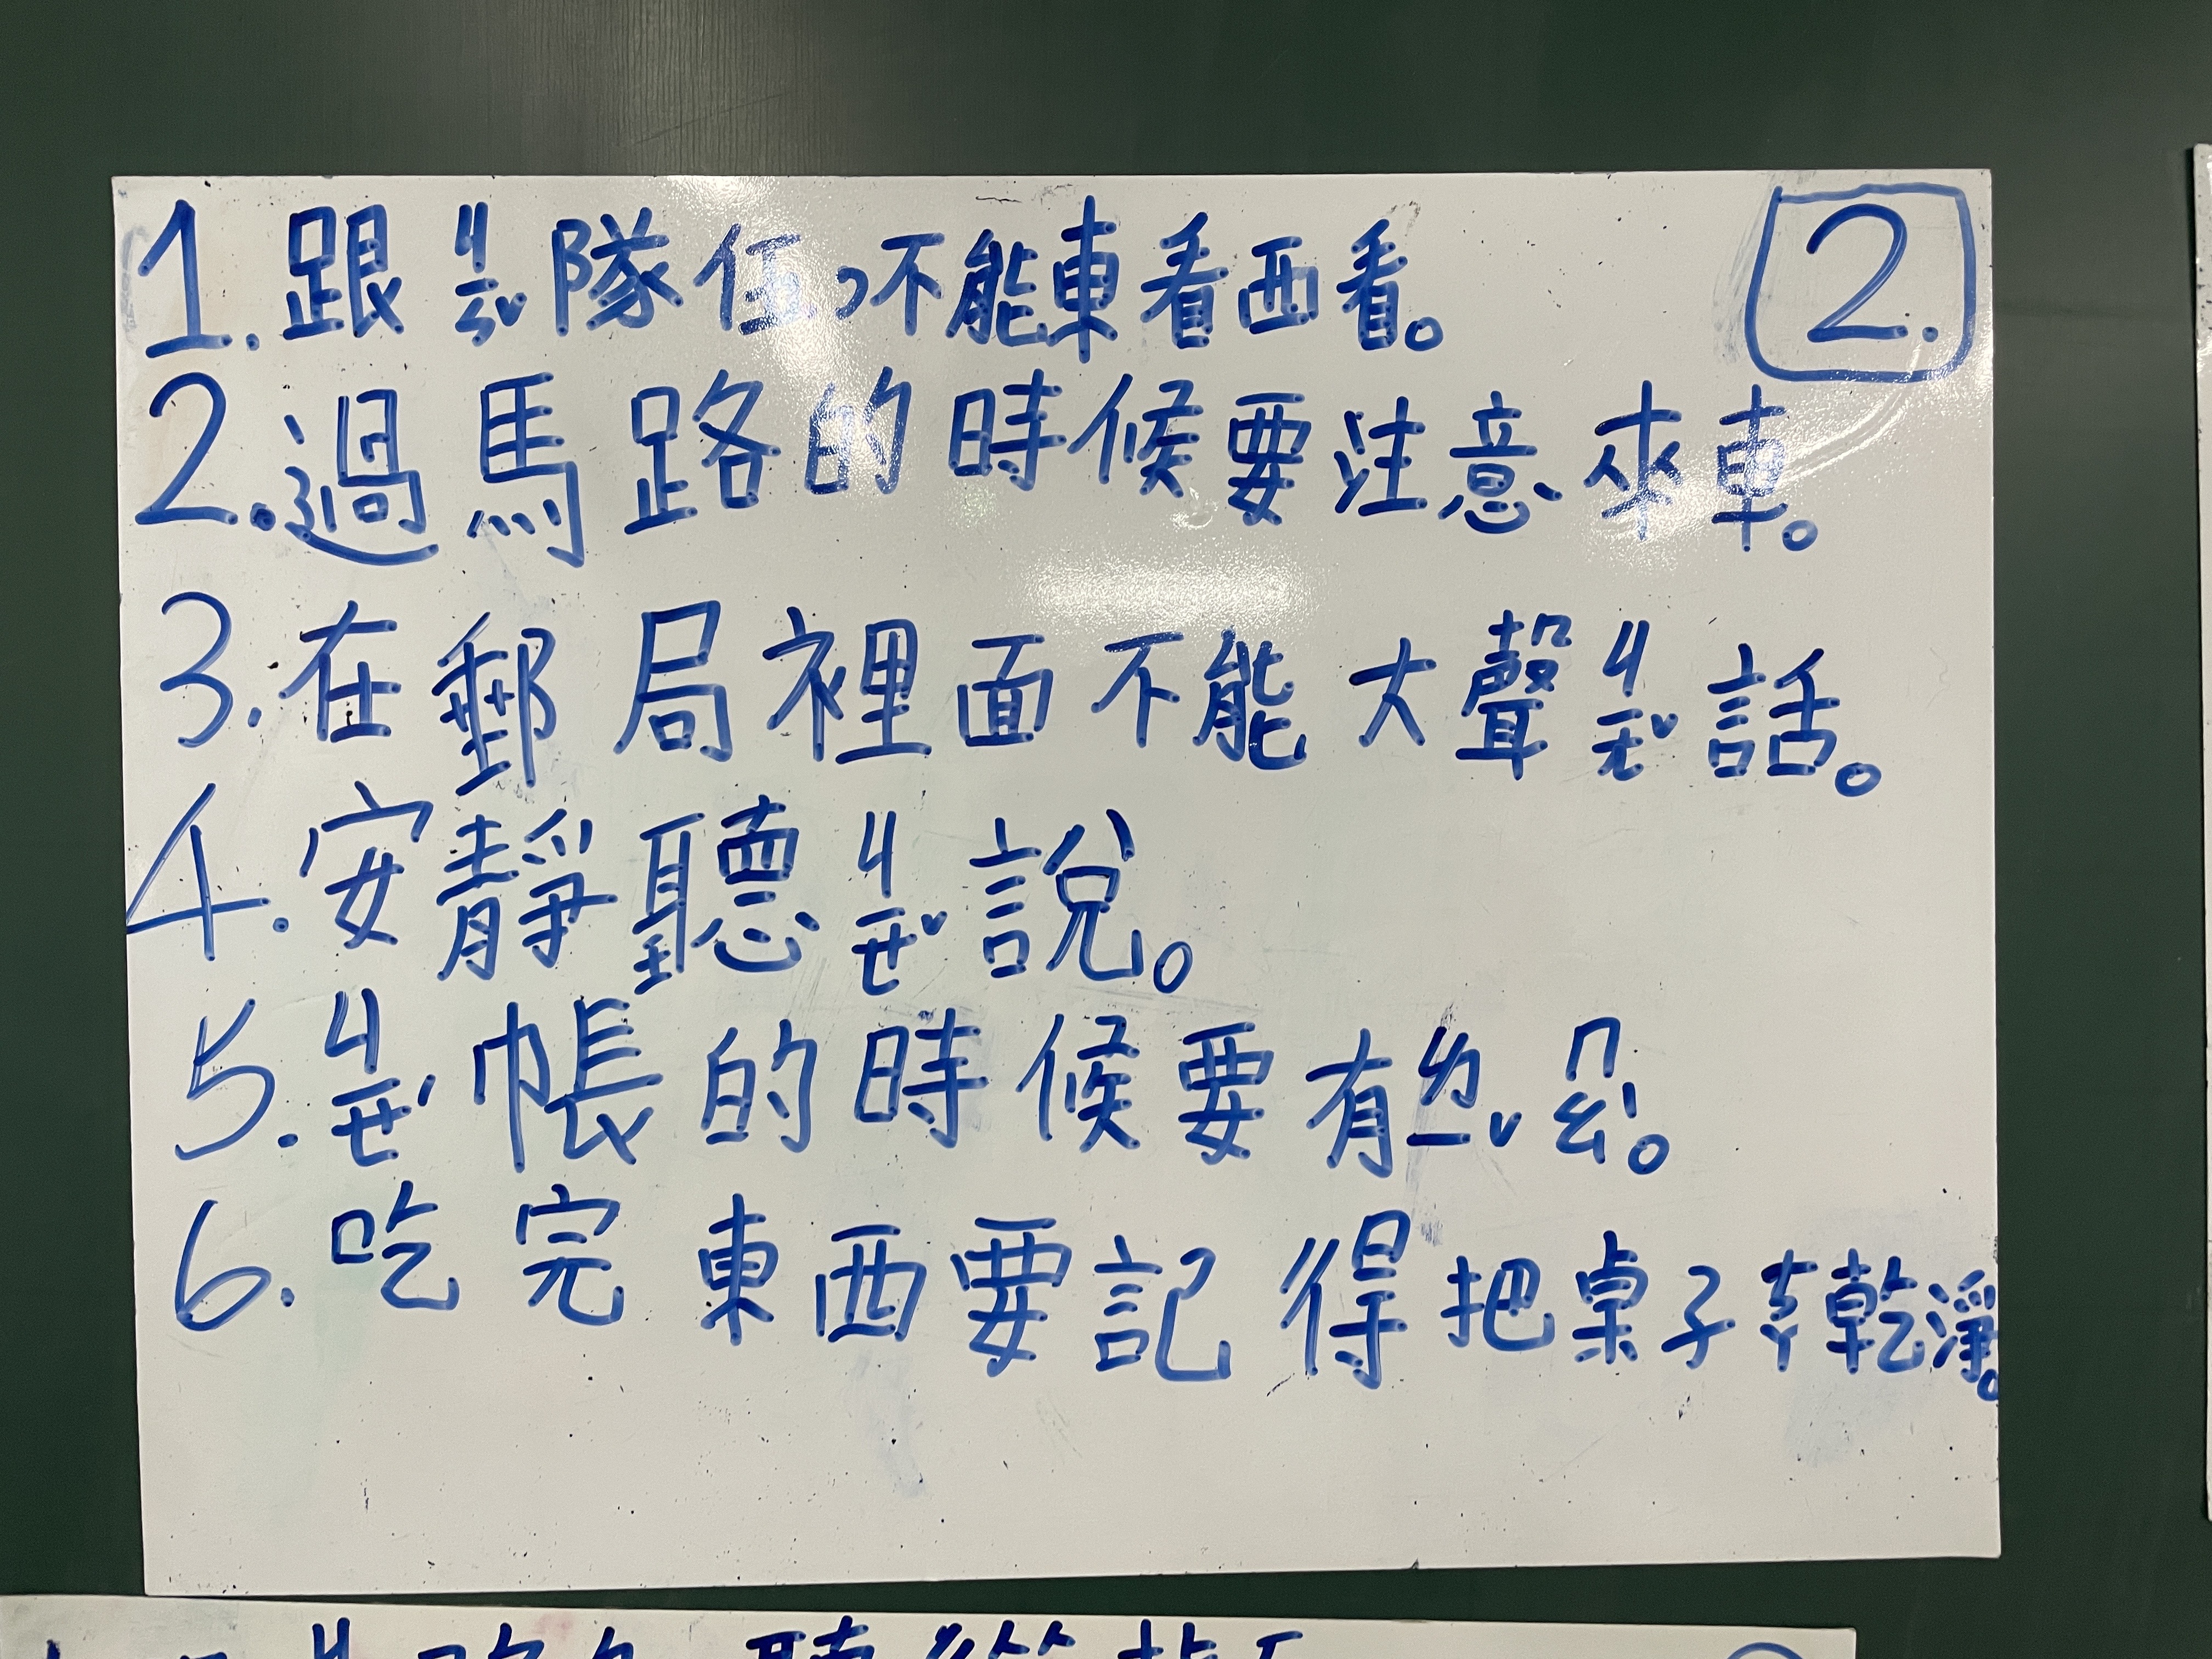 2.
1.跟ㄐㄧㄣˇ隊伍,不能東看西看。
2.過馬路的時候要注意來車。
3.在郵局裡面不能大聲ㄐㄧㄤˇ話。
4.安靜聽ㄐㄧㄝˇ說。
5.ㄐㄧㄝˊ帳的時候要有ㄌㄧˇㄇㄠˋ。
6.吃完東西要記得把桌子ㄘㄚ乾淨。